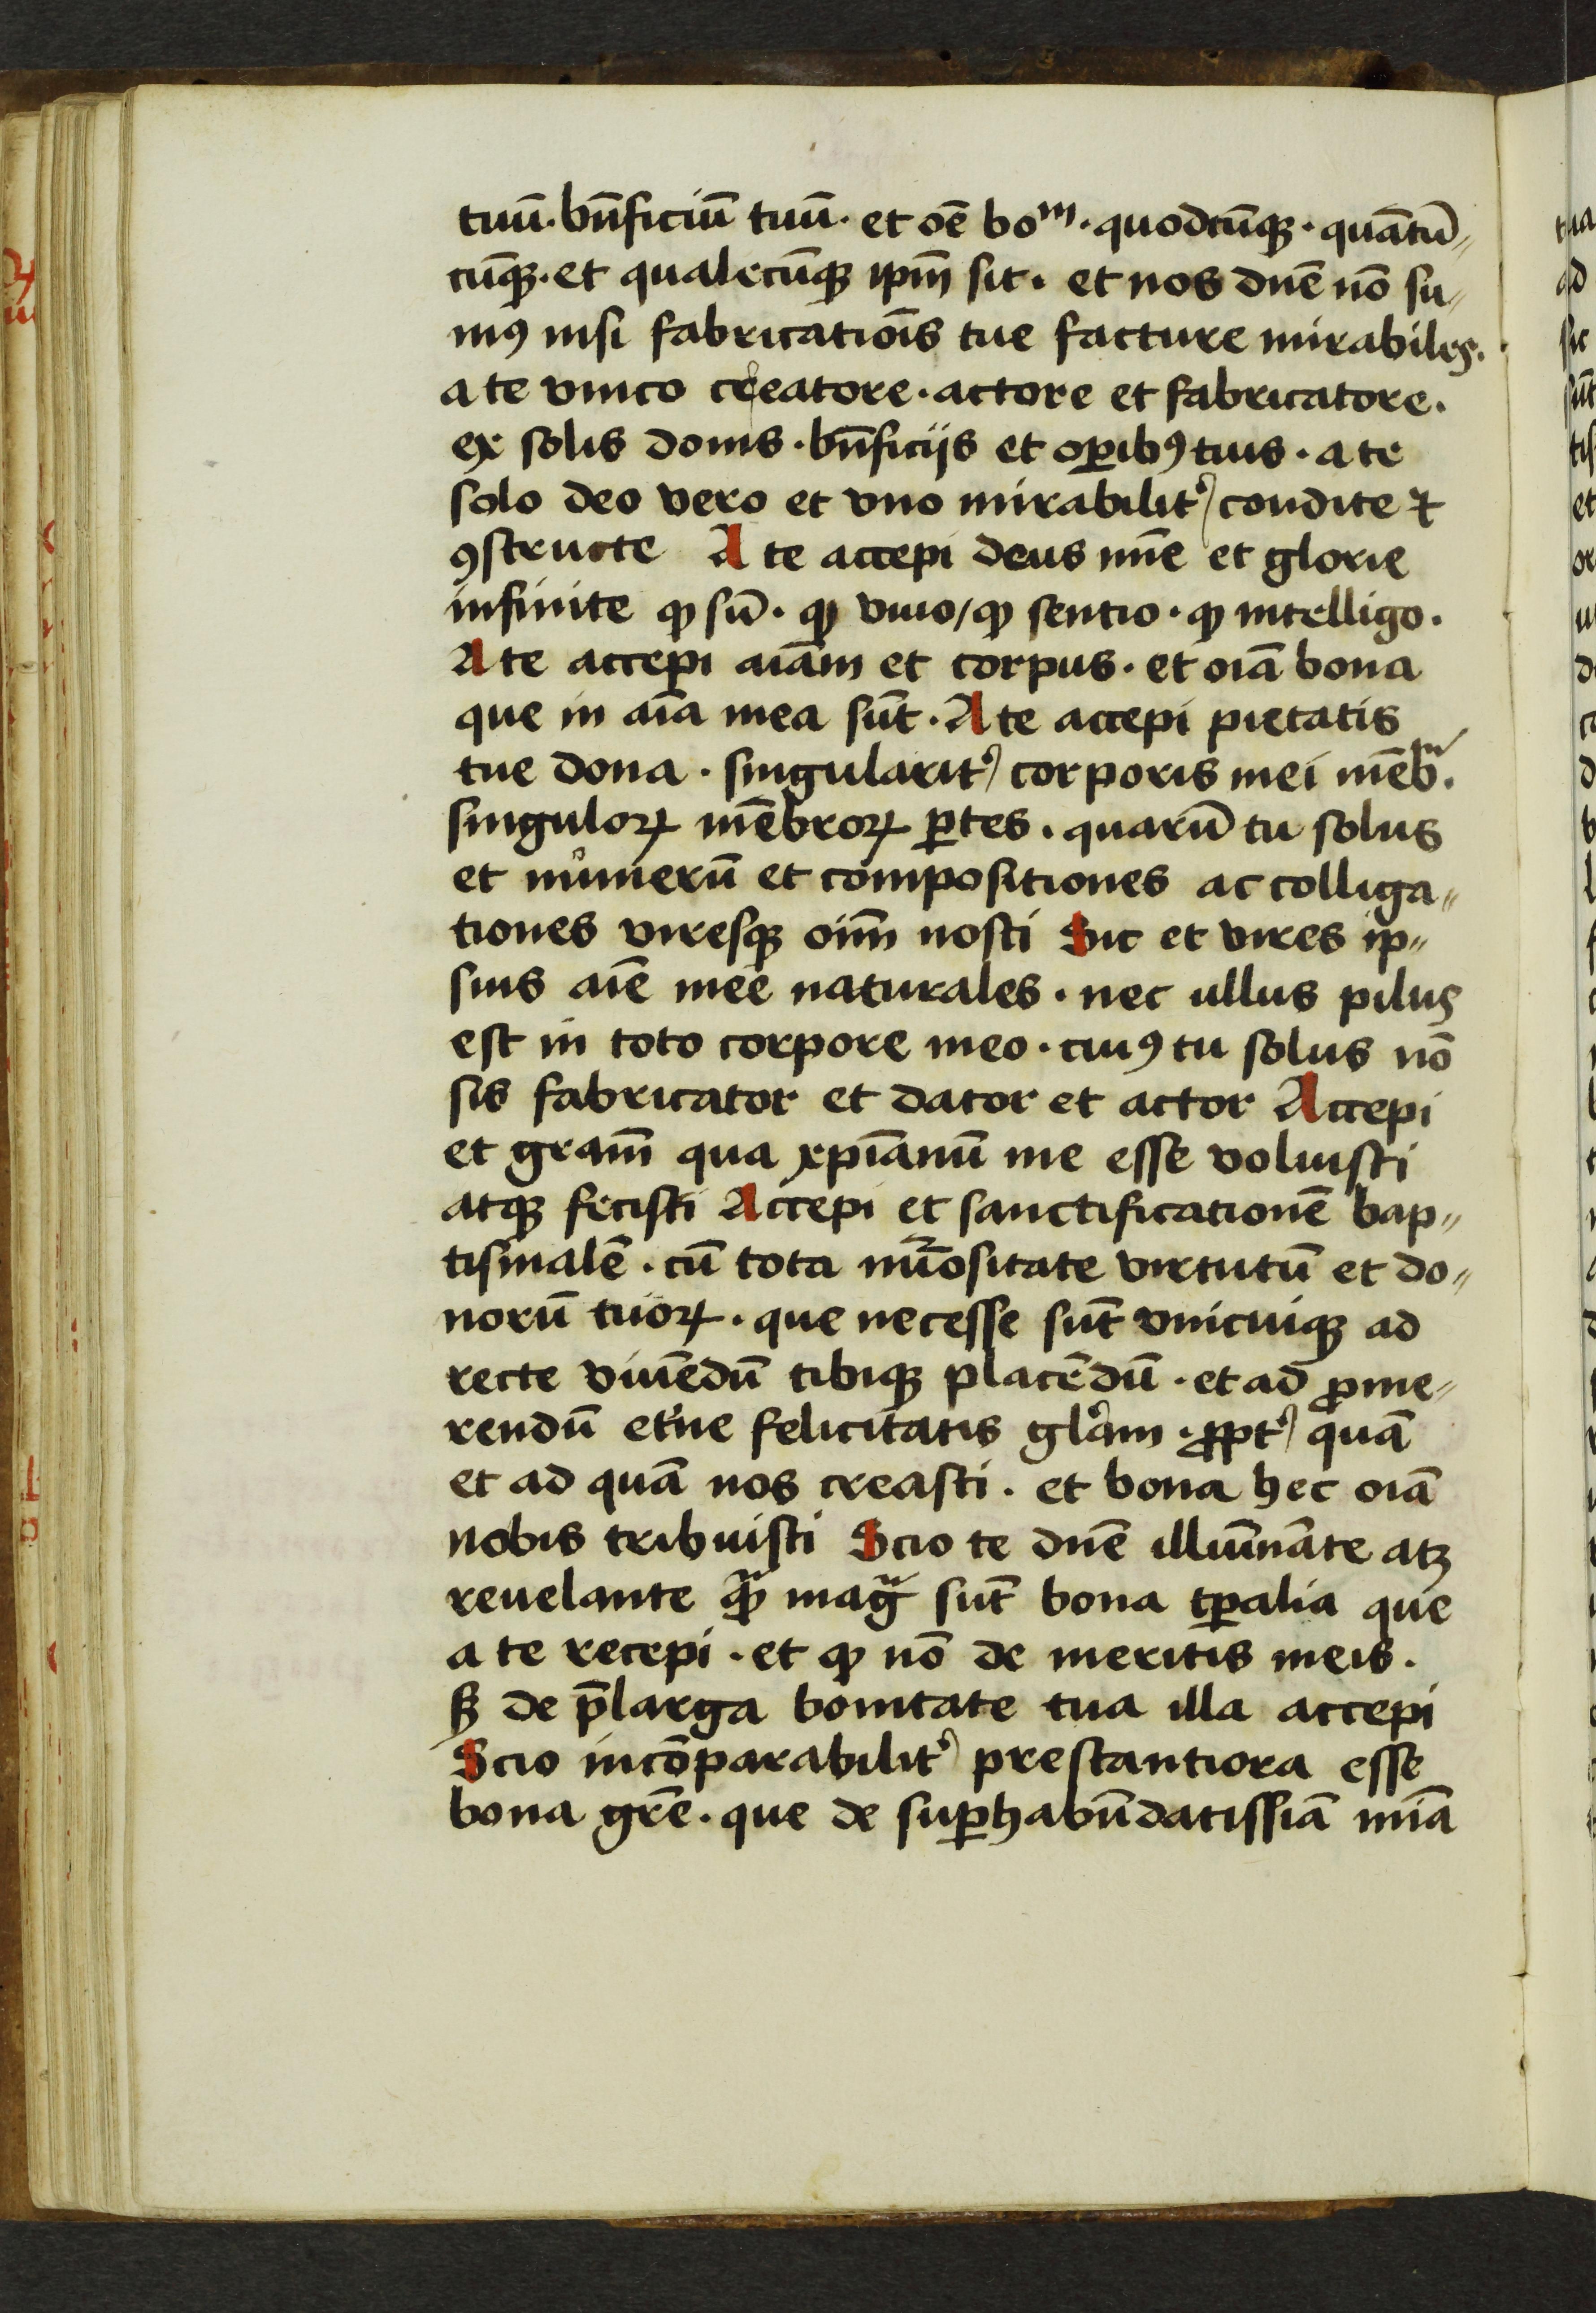 tuū. bn̄ficiū tuū. et oē boᵐ. quodcūqꝫ. quātū〃
cūqꝫ. et qualecūqꝫ ipm̄ sit. et nos dn̄e nō su〃
mꝰ nisi fabricatiōis tue facture mirabiles.
a te vnico creatore. actore et fabricatore.
ex solis donis. bn̄ficijs et oꝑibꝰ tuis. a te
solo deo vero et vno mirabilitᷣ condite ⁊
ꝯstructe A te accepi deus mīe et glorie
infinite ꝙ sū. ꝙ viuo / ꝙ sentio. ꝙ intelligo.
A te accepi aīam et corpus. et oīa bona
que in aīa mea sūt. A te accepi pietatis
tue dona. singularitᷣ corporis mei mēbᷓ.
singuloꝝ mēbroꝝ ꝑtes. quarū tu solus
et numerū et compositiones ac colliga〃
tiones viresqꝫ oīm nosti Sic et vires ip〃
sius aīe mee naturales. nec ullus pilus
est in toto corpore meo. cuiꝰ tu solus nō
sis fabricator et dator et actor Accepi
et gram̄ qua xp̄ianū me esse voluisti
atqꝫ fecisti Accepi et sanctificationē bap〃
tismalē. cū tota nūositate virtutū et do〃
norū tuoꝝ. que necesse sūt vnicuiqꝫ ad
recte viuēdū tibiqꝫ placēdū. et ad ꝓme〃
rendū etᷣne felicitatis glᷣam. ꝓptᷣ quā
et ad quā nos creasti. et bona hec oīa
nobis tribuisti Scio te dn̄e illūīnāte atꝫ
reuelante qᷓꝫ magᷓ sūt bona tꝑalia que
a te recepi. et ꝙ nō de meritis meis.
sꝫ de p̄larga bonitate tua illa accepi
Scio incōparabilitᷣ prestantiora esse
bona gr̄e. que de suꝑhabūdatissīa mīa